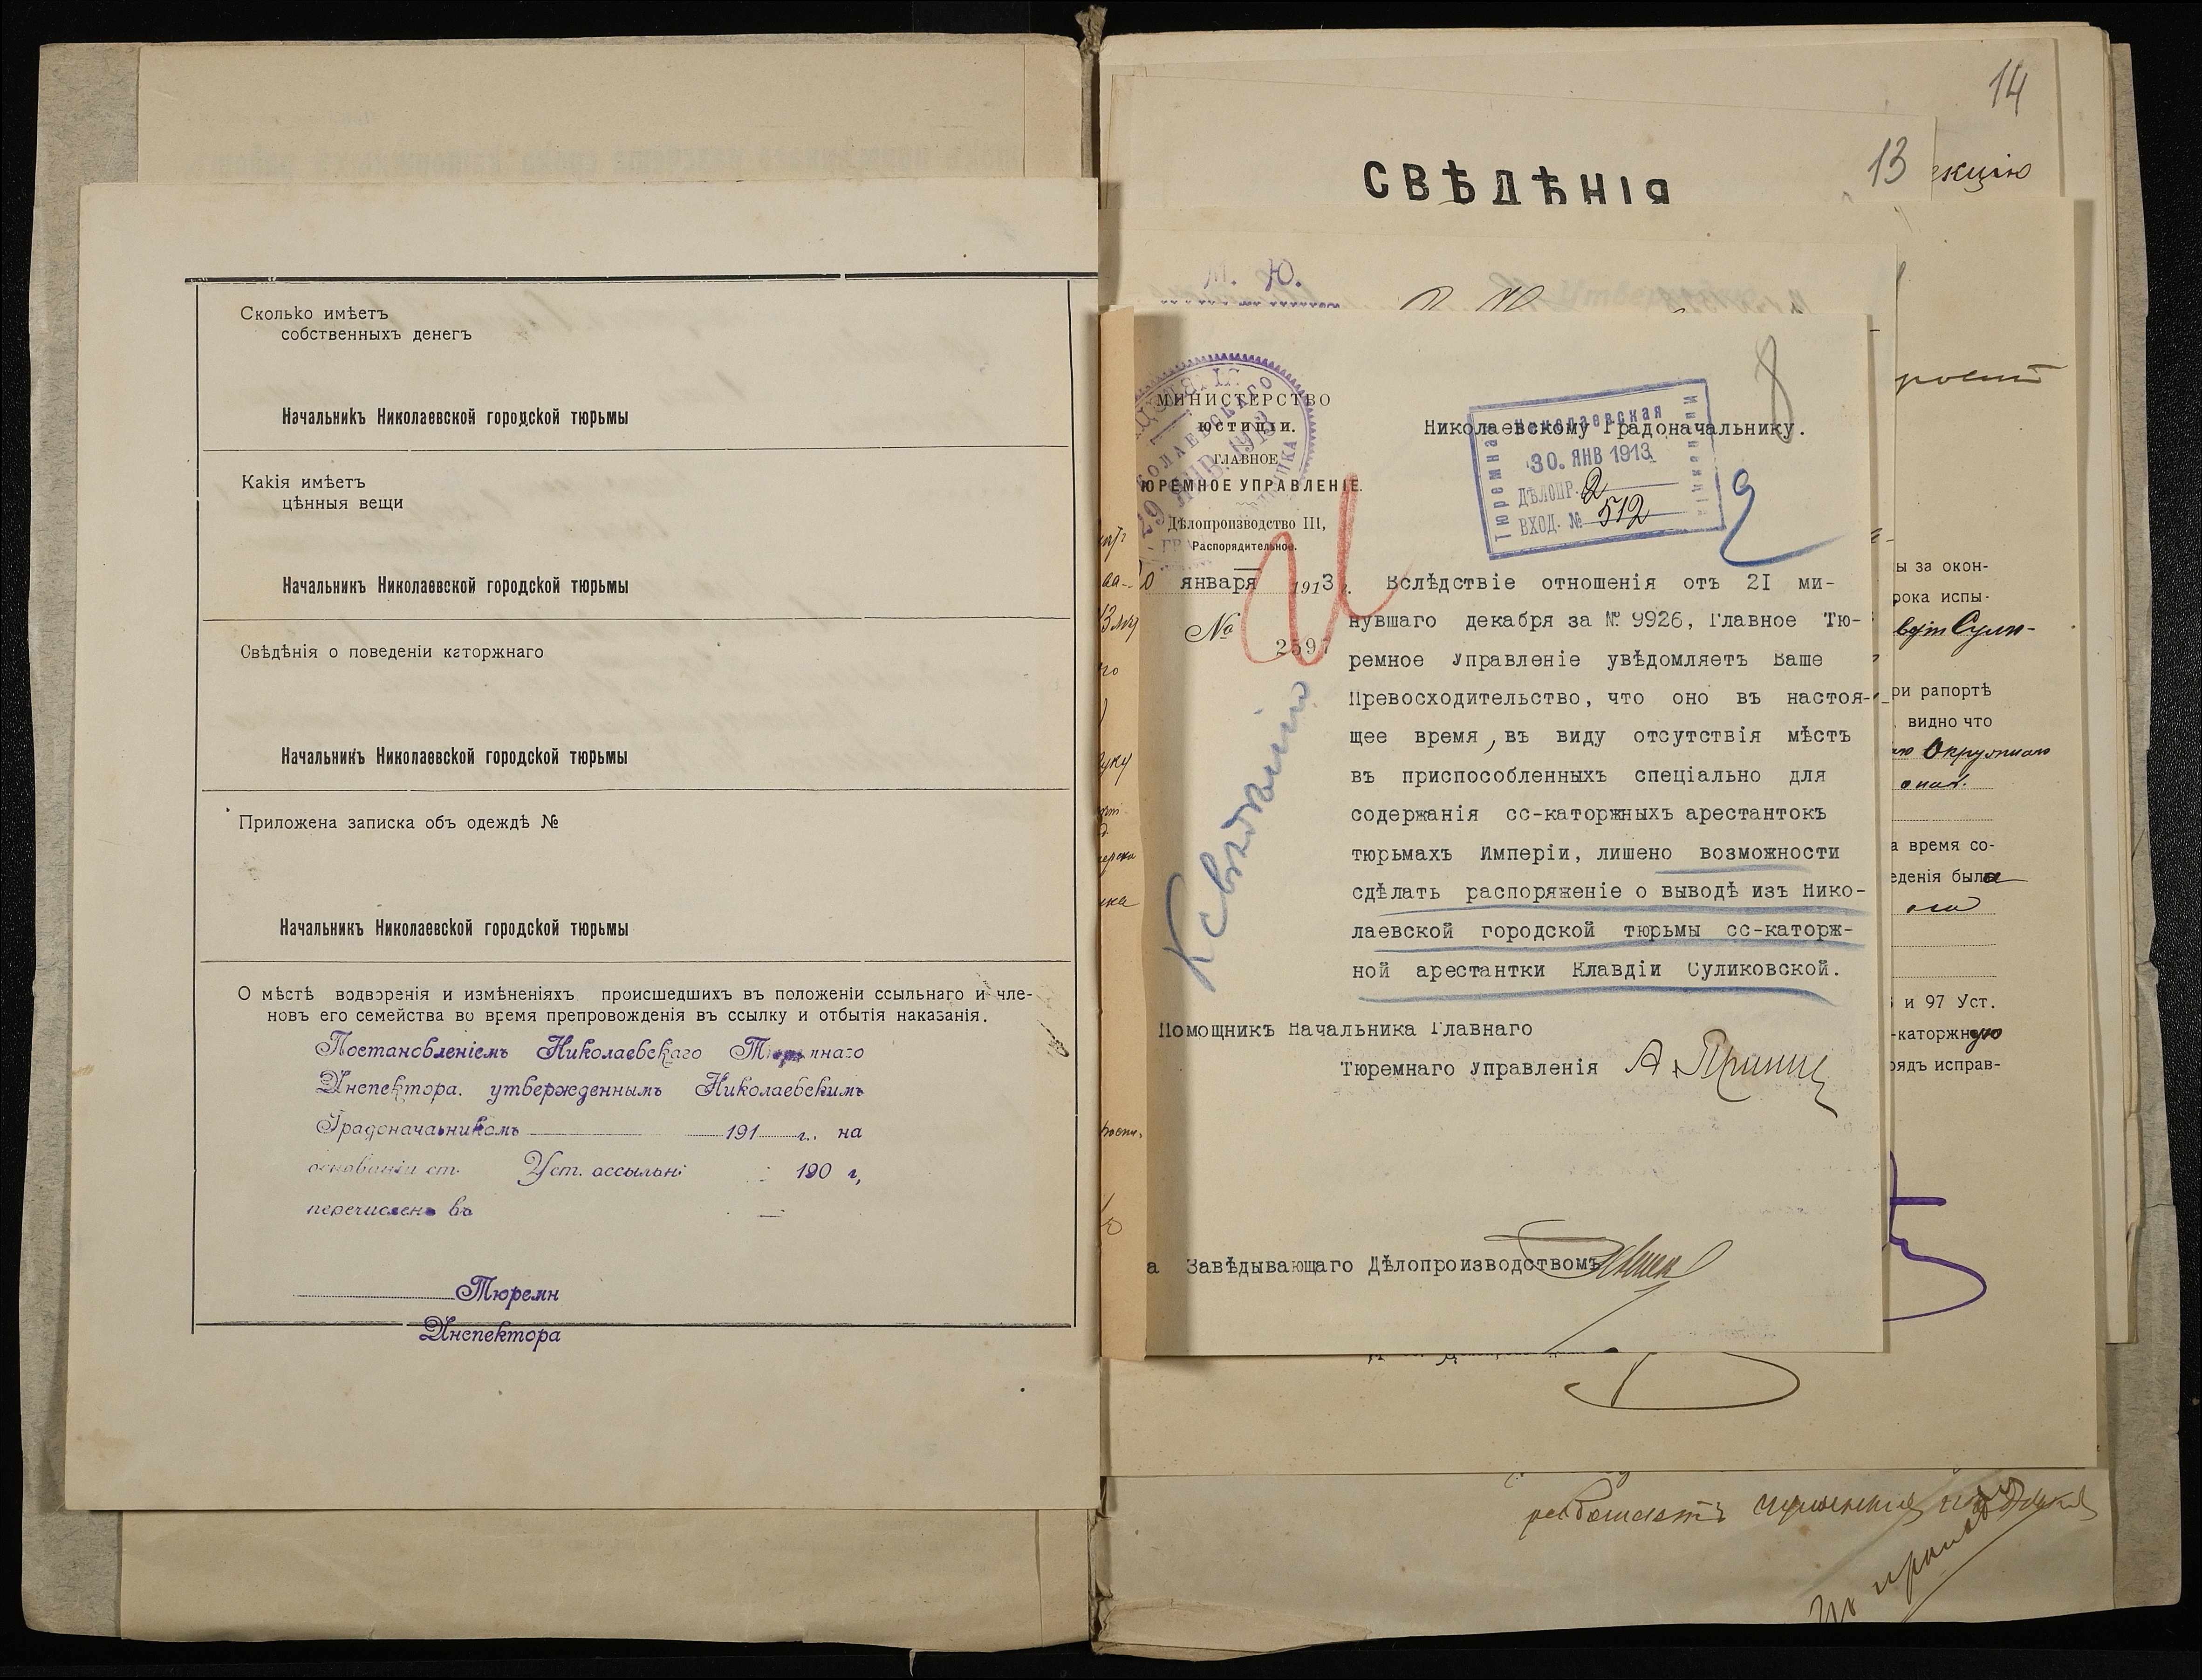 Сколько имѣетъ
собственныхъ денегъ
Начальникъ Николаевской городской тюрьмы
Какія имѣетъ
цѣнныя вещи
Начальникъ Николаевской городской тюрьмы
Свѣдѣнія о поведеніи каторжнаго
Начальникъ Николаевской городской тюрьмы
Приложена записка объ одеждѣ №
Начальникъ Николаевской городской тюрьмы
О мѣстѣ водворенія и измѣненіяхъ происшедшихъ въ положеніи ссыльнаго и чле-
новъ его семейства во время препровожденія въ ссылку и отбытія наказанія.
Постановленіемъ Николаевскаго
Инспектора, утвержденнымъ Николаевскимъ
Градоначальникомъ 191 г. на
основаніи ст. Уст. о ссыльн. 190 г,
перечислень въ
Тюремн
Инспектора
14
13
екцію
СВѢДѢНІЯ
М. Ю.
8
МИНИСТЕРСТВО
ЮСТИЦІИ.
ГЛАВНОЕ
ЮРЕМНОЕ УПРАВЛЕНІЕ.
Дѣлопроизводство III,
Распорядительное.
0 января 1913 г.
№ 2597
Къ свѣдѣнію
Николаевскому Градоначальнику.
Николаевская
Тюремная
30. ЯНВ 1913.
ДѢЛОПР. 2
ВХОД. № 512
Вслѣдствіе отношенія отъ 2I ми-
нувшаго декабря за № 9926, Главное Тю-
ремное Управленіе увѣдомляетъ Ваше
Превосходительство, что оно въ настоя-
щее время, въ виду отсутствія мѣстъ
въ приспособленныхъ спеціально для
содержанія сс-каторжныхъ арестантокъ
тюрьмахъ Имперіи, лишено возможности
сдѣлать распоряженіе о выводѣ изъ Нико-
лаевской городской тюрьмы сс-каторж-
ной арестантки Клавдіи Суликовской.
Помощникъ Начальника Главнаго
Тюремнаго Управленія
а Завѣдывающаго Дѣлопроизводствомъ
ы за окон-
рока испы-
ри рапортѣ
видно что
Окружнаго
а время со-
еденія была
и 97 Уст.
-каторжную
рядъ исправ-